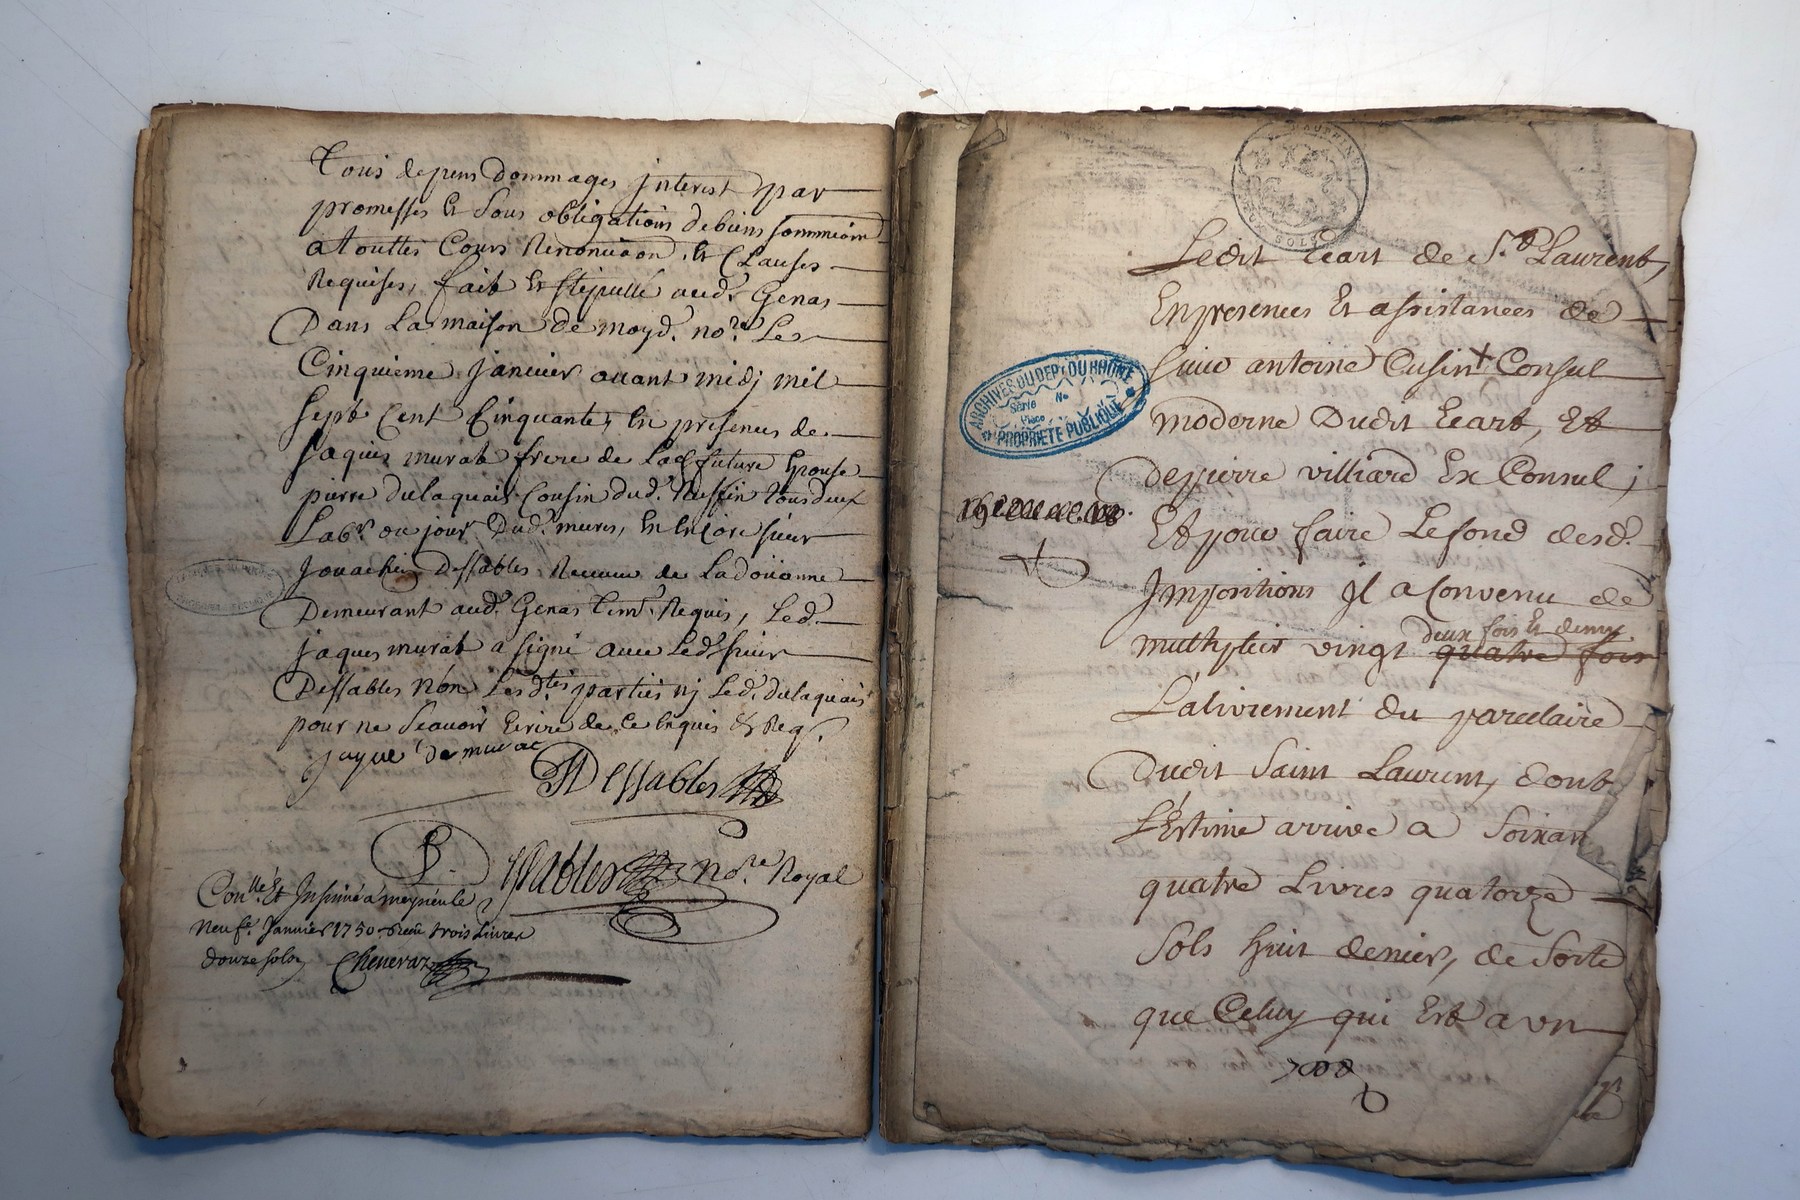 Tous depens dommages jnterest par
promesses Et Sous obligations debiens
a touttes Cours Renonciaon, Et Clauses
Requises, fait Et stipullé aud. Genas
Dans La maison de moyd. nore. Les
Cinquieme Janvier avant midj mil
Sept Cent Cinquante, En presences de
Jaques murat frere de Lad future Epouse
pierre dulaquais Cousin dud. Ruffin tous deux
Labr. ou jour. Dud. mures, Et Encore sieur
Dessables Receveur de La doüanne
Demeurant aud. Genas Tem. Requis, Led.
jaques murat a signé avec Led. sieur
Dessables Nón Lesdtes parties nj Led. dulaquais
pour ne Scavoir Ecrire de ce Enquis & Req.
jaque de murat
Dessables
Dessables Nore. Royal
Conllé. Et Jnsinué a meyzieu le
Neufe. Janvier 1750 Receu trois Livres
douze sols Cheneraz
Ledit Ecart de St. Laurent,
En presences Et assistances de
sieur antoine Cusin + Consul
ARCHIVES DU DEPt DU RHÔNE
Série No
Pièce
PROPRIÉTÉ PUBLIQUE
moderne Dudit Ecart, Et
de pierre villiard Ex Consul;
Et pour faire Le fond desd.
Jmpositions Jl a Convenu de
deux fois Et demy
multiplier vingt quatre fois
L'alivrement du parcelaire
Dudit Saint Laurent, dont
L'Estime arrive a Soixan
quatre Livres quatorze
Sols huit denier, de Sorte
que Celuy qui Est a un